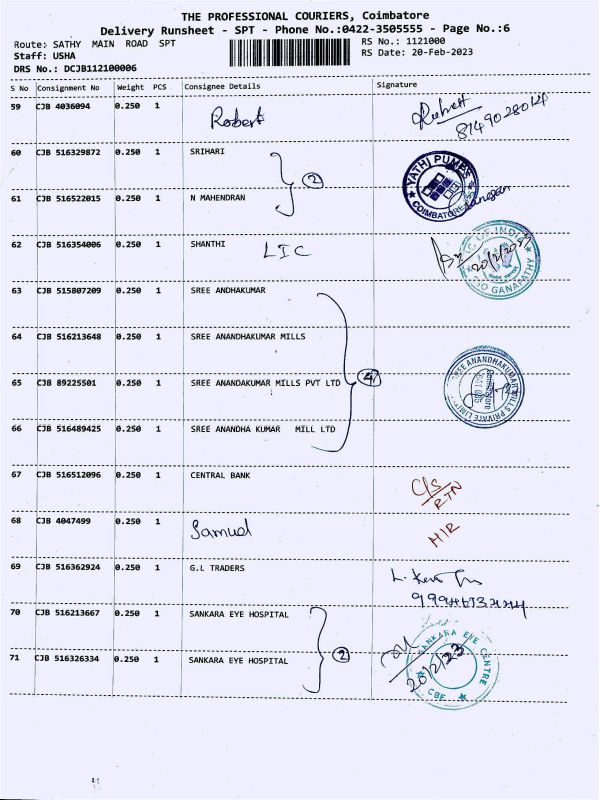 THE PROFESSIONAL COURIERS, Coimbatore
Delivery Runsheet - SPT - Phone No.:0422-3505555 - Page No.:6
Route: SATHY MAIN ROAD SPT RS No.: 1121000
Staff: USHA RS Date: 20-Feb-2023
DRS No.: DCJB112100006
S No Consignment No Weight PCS Consignee Details Signature
59 CJB 4036094 0.250 1 Robert 8149028014
60 CJB 516329872 0.250 1 SRIHARI YATHI PUMPS COIMBATORE
2
61 CJB 516522015 0.250 1 N MAHENDRAN
62 CJB 516354006 0.250 1 SHANTHI LIC OF INDIA GANAPATHY 20/2/2023
LIC
63 CJB 515807209 0.250 1 SREE ANDHAKUMAR
64 CJB 516213648 0.250 1 SREE ANANDHAKUMAR MILLS
65 CJB 89225501 0.250 1 SREE ANANDAKUMAR MILLS PVT LTD 4 SREE ANANDHAKUMAR MILLS PRIVATE LIMITED
66 CJB 516489425 0.250 1 SREE ANANDHA KUMAR MILL LTD
67 CJB 516512096 0.250 1 CENTRAL BANK C/S
RTN
68 CJB 4047499 0.250 1 Samuel HIR
69 CJB 516362924 0.250 1 G.L TRADERS
70 CJB 516213667 0.250 1 SANKARA EYE HOSPITAL
2 SANKARA EYE CENTRE CBE 20/2/23
71 CJB 516326334 0.250 1 SANKARA EYE HOSPITAL